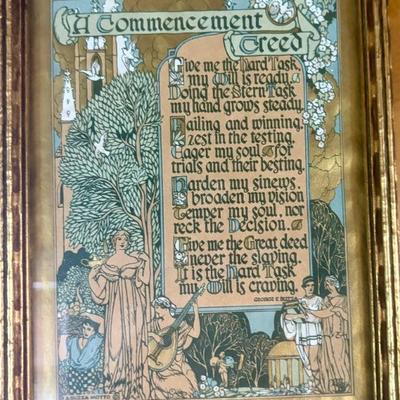 A Commencement
Creed
Give me the Hard Task
my Will is ready.
Doing the Stern Task
my hand grows steady.
Failing and winning.
Zest in the testing.
Eager my soul for
trials and their besting.
Harden my sinews.
broaden my vision
Temper my soul, nor
reck the Decision.
Give me the Great deed
never the slaving.
It is the Hard Task
my Will is craving.
GEORGE E. BUZZA
A BUZZA MOTTO